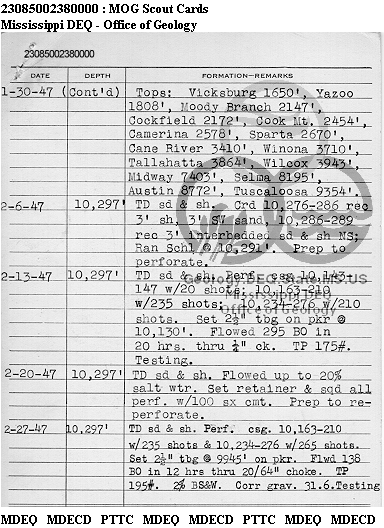 23085002380000 : MOG Scout Cards
Mississippi DEQ - Office of Geology
23085002380000
DATE DEPTH FORMATION—REMARKS
1-30-47 (Cont'd) Tops: Vicksburg 1650', Yazoo
1808', Moody Branch 2147',
Cockfield 2172', Cook Mt. 2454',
Camerina 2578', Sparta 2670',
Cane River 3410', Winona 3710',
Tallahatta 3864', Wilcox 3943',
Midway 7403', Selma 8195',
Austin 8772', Tuscaloosa 9354'.
2-6-47 10,297' TD sd & sh. Crd 10,276-286 rec
3' sh, 3' SW sand, 10,286-289
rec 3' interbedded sd & sh NS;
Ran Schl @ 10,291'. Prep to
perforate.
2-13-47 10,297' TD sd & sh. Perf. csg. 10,143-
147 w/20 shots; 10,163-210
w/235 shots; 10,234-276 w/210
shots. Set 2½" tbg on pkr @
10,130'. Flowed 295 BO in
20 hrs. thru ½" ck. TP 175#.
Testing.
Geology.DEQ.State.MS.US
Mississippi DEQ
Office of Geology
2-20-47 10,297' TD sd & sh. Flowed up to 20%
salt wtr. Set retainer & sqd all
perf. w/100 sx cmt. Prep to re-
perforate.
2-27-47 10,297' TD sd & sh. Perf. csg. 10,163-210
w/235 shots & 10,234-276 w/265 shots.
Set 2½" tbg @ 9945' on pkr. Flwd 138
BO in 12 hrs thru 20/64" choke. TP
195#. 2% BS&W. Corr grav. 31.6.Testing
MDEQ MDECD PTTC MDEQ MDECD PTTC MDEQ MDECD